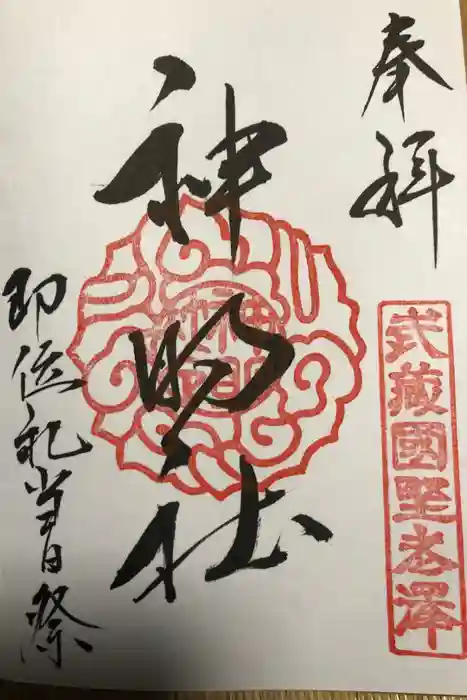 奉拝
武藏國野老澤
神明社
即位礼当日祭